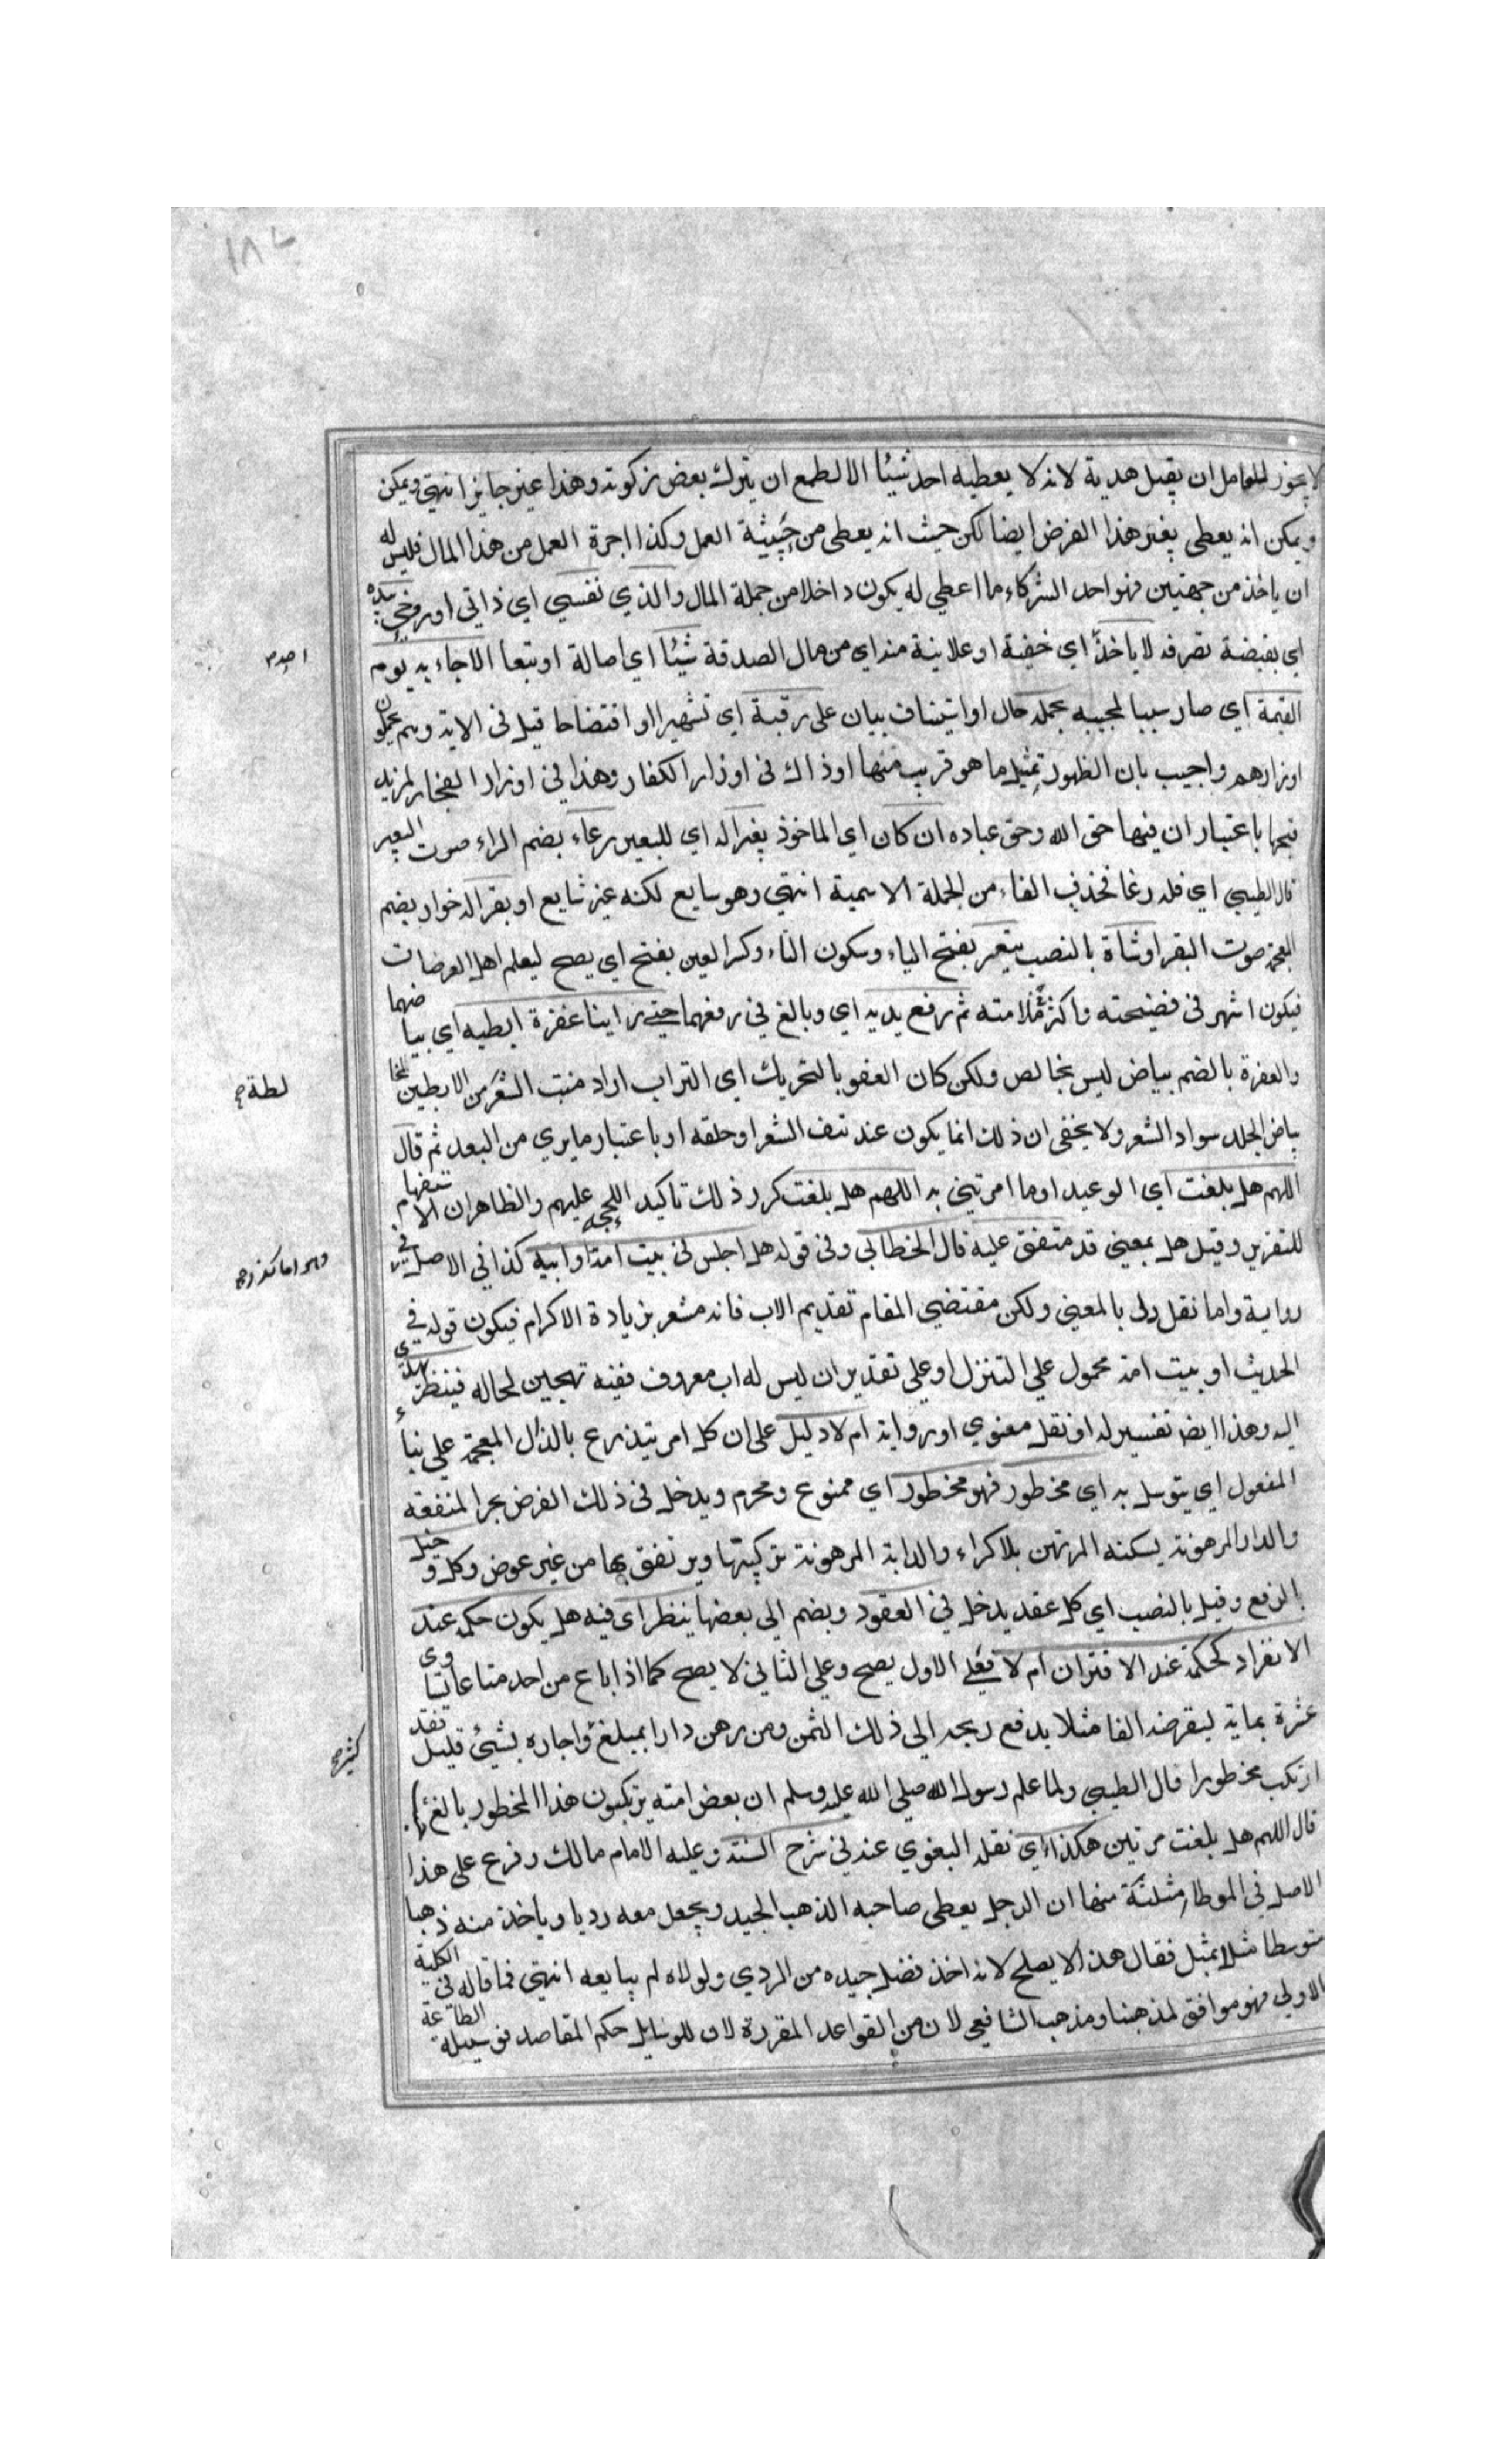 ١٨٢
لا يجوز للعامل ان يقبل هدية لانه لا يعطيه احد شيئا الا لطمع ان يترك بعض زكوته وهذا غير جايز انتهي ويمكن
ويمكن انه يعطى بغير هذا الغرض ايضا لكن حيث انه يعطى من حيثية العمل وكذا اجرة العمل من هذا المال فليس له
ان ياخذ من جهتين فهو احد الشركاء ما اعطي له يكون داخلا من جملة المال والذي نفسي اي ذاتي او روحي بيده
اي بقبضة تصرفه لا ياخذ اي خفية او علانية منه اي من مال الصدقة شيئا اي اصالة او تبعا الا جاء به يوم
القيمة اي صار سببا لمجيبه يحمله حال او استيناف بيان على رقبة اي تشهيرا او افتضاحا قيل في الاية وهم يحملون
اوزارهم واجيب بان الظهور تمثيل ما هو قريب منها او ذاك في اوزار الكفار وهذا في اوزار الفجار لمزيد
قبحها باعتبار ان فيها حق الله وحق عباده ان كان اي الماخوذ بغير اله اي للبعير رغاء بضم الراء صوت البعير
قال الطيبي اي فله رغا فحذف الفاء من الجملة الاسمية انتهي وهو سايع لكنه غير شايع او بقر اله خوار بضم
المعجمة صوت البقر او شاة بالنصب تيعر بفتح الياء وسكون التاء وكسر العين بفتح اي يصح ليعلم اهل العرضات
فيكون اشهر في فضيحته واكثر ملامته ثم رفع يديه اي وبالغ في رفعهما حتى راينا عفرة ابطيه اي بياضهما
والعفرة بالضم بياض ليس بخالص ولكن كان العفو بالتحريك اي التراب اراد منبت الشعر من الابطين لمخا
بياض الجلد سواد الشعر ولا يخفى ان ذلك انما يكون عند نتف الشعر او حلقه او باعتبار ما يري من البعد ثم قال
اللهم هل بلغت اي الوعيد او ما امرتني به اللهم هل بلغت كرر ذلك تاكيد اللحجه عليهم والظاهر ان الاستفهام
للتقرير وقيل هل بمعنى قد متفق عليه قال الخطابي وفي قوله هل اجلس في بيت امه او ابيه كذا في الاصل في
رواية واما نقل له بالمعنى ولكن مقتضي المقام تقديم الاب فانه مشعر بزيادة الاكرام فيكون قوله في
الحديث او بيت امه محمول علي التنزل او على تقدير ان ليس له اب معروف ففيه تهجين لحاله فينظر يهدى
اليه وهذا ايض تفسير له او نقل معنوي او رواية ام لا دليل على ان كل امر يتذرع بالذال المعجمة علي بناء
المفعول اي يتوسل به اي مخطور فهو مخطور اي ممنوع ومحرم ويدخل في ذلك القرض يجر المنفعة
والدار المرهونة يسكنه المرتهن بلا كراء والدابة المرهونة يركبها ويرتفق بها من غير عوض وكل دخيل
بالرفع وقيل بالنصب اي كل عقد يدخل في العقود ويضم الى بعضها ينظر اى فيه هل يكون حكمه عند
الانفراد كحكمه عند الاقتران ام لا فعلى الاول يصح وعلي الثاني لا يصح كما اذا باع من احد متاعا يساوى
عشرة بماية ليقرضه الفا مثلا يدفع ربحه الي ذلك الثمن ومن رهن دارا بمبلغ واجاره بشئ قليل فقد
ارتكب مخطورا قال الطيبي ولما علم رسول الله صلى الله عليه وسلم ان بعض امته يرتكبون هذا المخطور بالغ
قال اللهم هل بلغت مرتين هكذا اي نقله البغوي عنه في شرح السنة وعليه الامام مالك وفرع على هذا
الاصل في الموطا مثلثة منها ان الرجل يعطى صاحبه الذهب الجيد ويجعل معه رديا وياخذ منه ذهبا
متوسطا مثلا بمثل فقال هذا لا يصلح لانه اخذ فضل جيده من الردي ولولاه لم يبايعه انتهي فما قاله في الكلية
الاولي فهو موافق لمذهبنا ومذهب الشافعي لان من القواعد المقررة لان للوسايل حكم المقاصد فوسيلة الطاعة
لطة صح
كثير صح